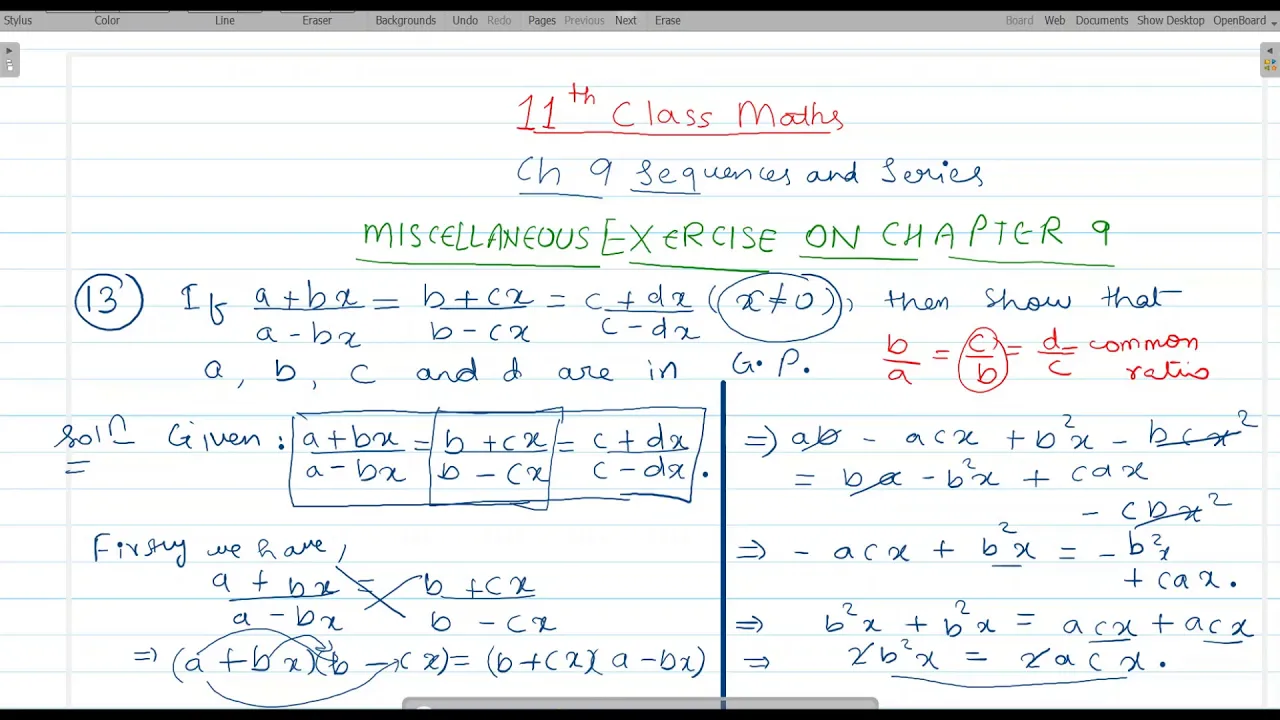 Stylus Color Line Eraser Backgrounds Undo Redo Pages Previous Next Erase Board Web Documents Show Desktop OpenBoard
11th Class Maths
Ch 9 Sequences and Series
MISCELLANEOUS EXERCISE ON CHAPTER 9
(13) If (a+bx)/(a-bx) = (b+cx)/(b-cx) = (c+dx)/(c-dx) (x≠0), then show that
a, b, c and d are in G.P.
b/a = c/b = d/c = common ratio
Soln Given : (a+bx)/(a-bx) = (b+cx)/(b-cx) = (c+dx)/(c-dx).
Firstly we have,
(a+bx)/(a-bx) = (b+cx)/(b-cx)
=> (a+bx)(b-cx) = (b+cx)(a-bx)
=> ab - acx + b²x - bcx²
= ba - b²x + cax
- cbx²
=> - acx + b²x = - b²x
+ cax.
=> b²x + b²x = acx + acx
=> 2b²x = 2acx.